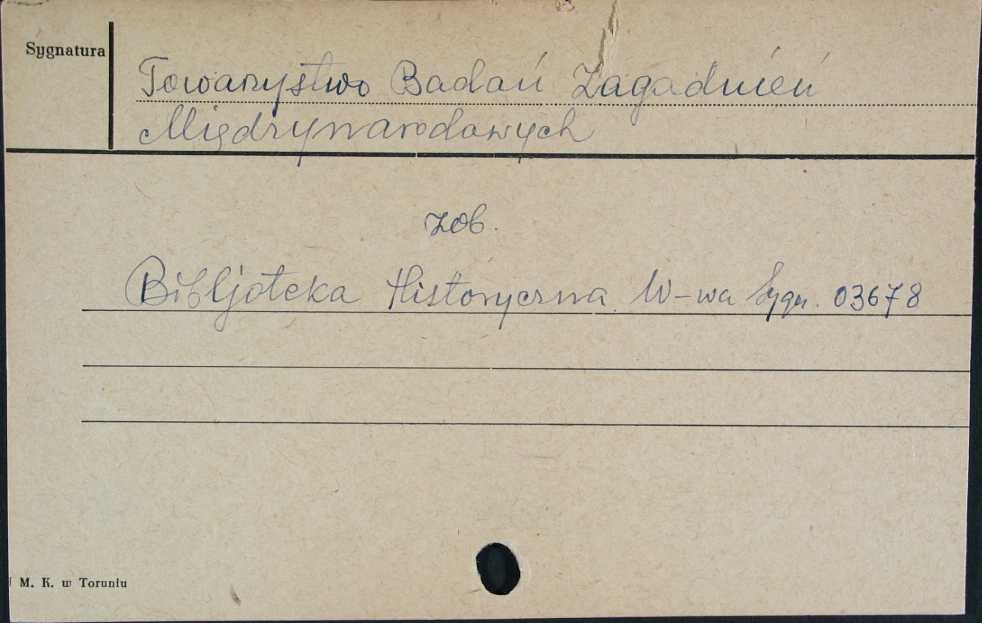 Sygnatura
Towarzystwo Badań Zagadnień
Międzynarodowych
zob.
Bibljoteka Historyczna W-wa Sygn. 03678
M. K. w Toruniu